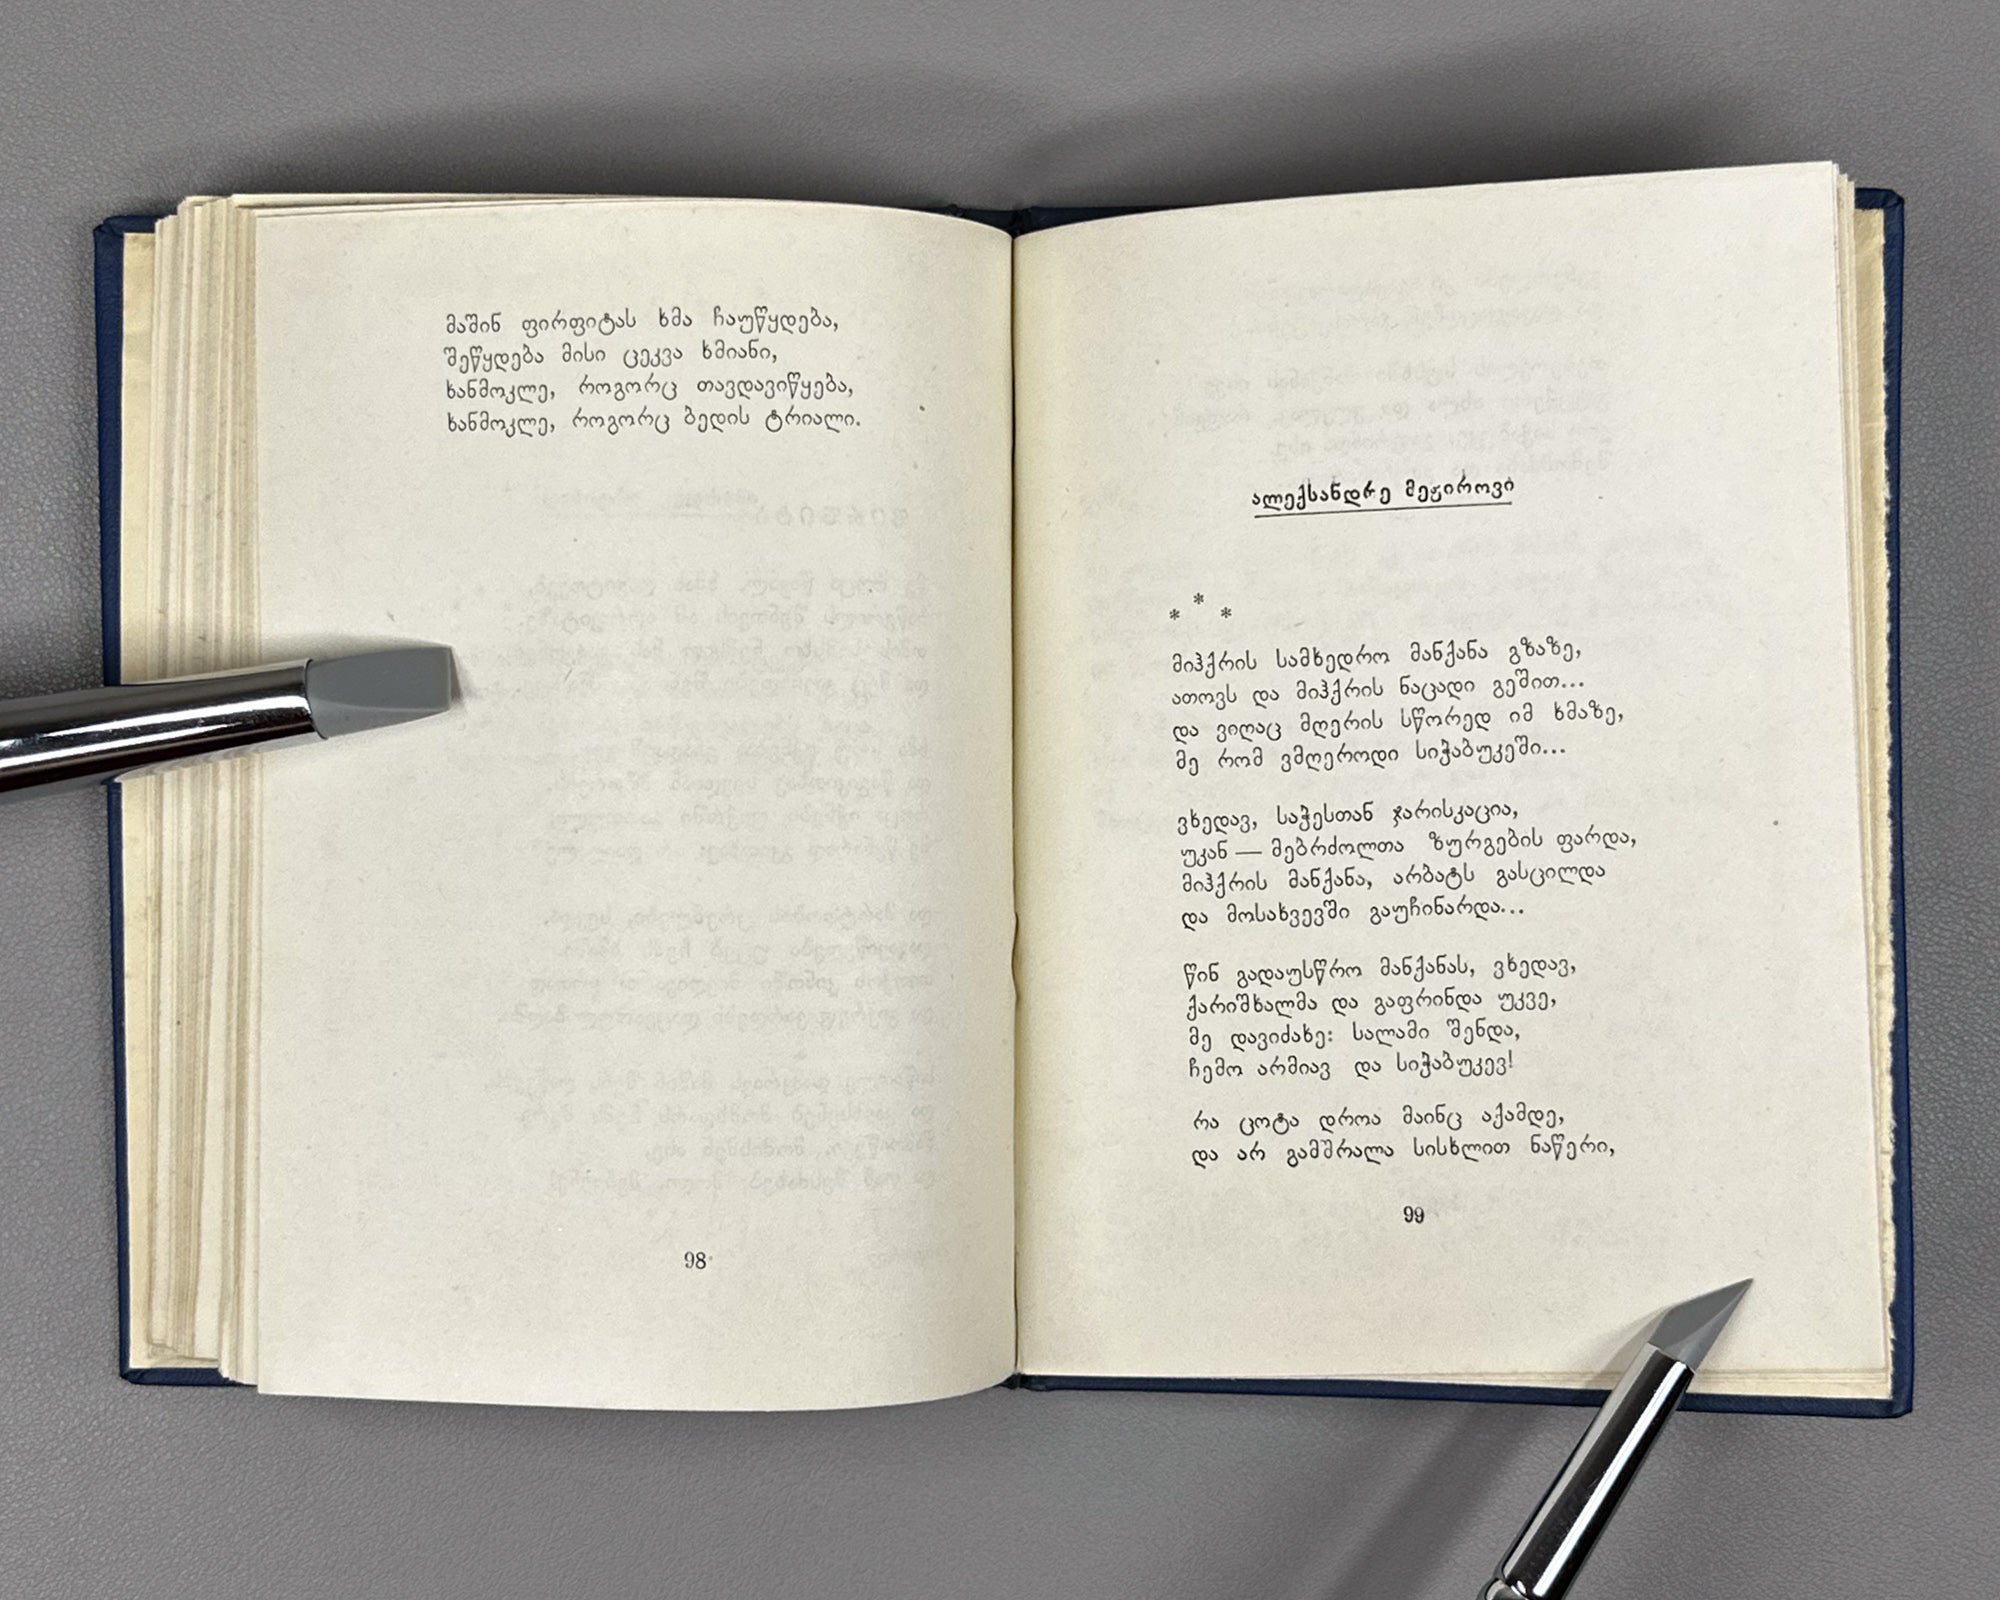 მაშინ ფირფიტას ხმა ჩაუწყდება,
შეწყდება მისი ცეკვა ხმიანი,
ხანმოკლე, როგორც თავდავიწყება,
ხანმოკლე, როგორც ბედის ტრიალი.
98
ალექსანდრე მეჟიროვი
* * *
მიჰქრის სამხედრო მანქანა გზაზე,
ათოვს და მიჰქრის ნაცადი გეშით...
და ვიღაც მღერის სწორედ იმ ხმაზე,
მე რომ ვმღეროდი სიჭაბუკეში...
ვხედავ, საჭესთან ჯარისკაცია,
უკან — მებრძოლთა ზურგების ფარდა,
მიჰქრის მანქანა, არბატს გასცილდა
და მოსახვევში გაუჩინარდა...
წინ გადაუსწრო მანქანას, ვხედავ,
ქარიშხალმა და გაფრინდა უკვე,
მე დავიძახე: სალამი შენდა,
ჩემო არმიავ და სიჭაბუკევ!
რა ცოტა დროა მაინც აქამდე,
და არ გამშრალა სისხლით ნაწერი,
99